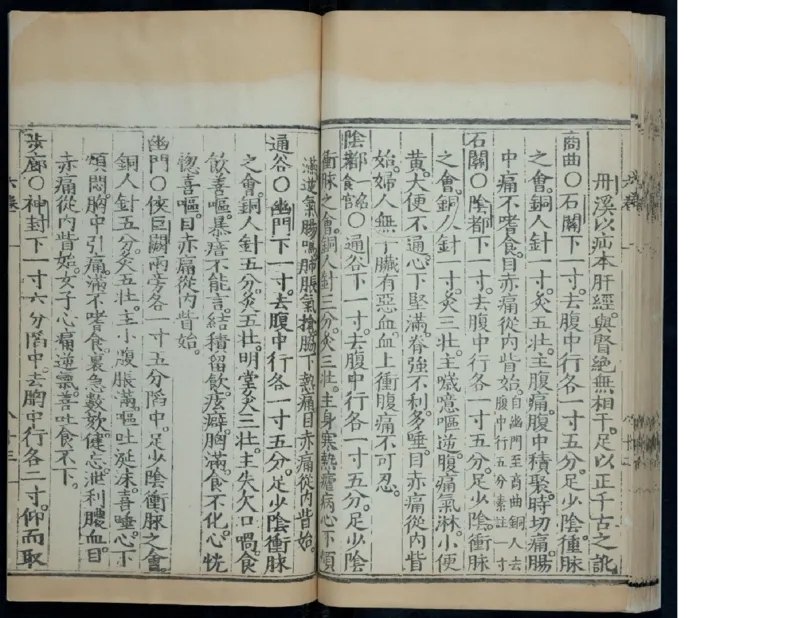 丹溪以疝本肝經與腎絶無相干足以正千古之訛
商曲○石關下一寸去腹中行各一寸五分足少陰衝脉
之會銅人針一寸灸五壯主腹痛腹中積聚時切痛腸
中痛不嗜食目赤痛從內眥始自幽門至商曲銅人去腹中行五分素註一寸
石關○陰都下一寸去腹中行各一寸五分足少陰衝脉
之會銅人針一寸灸三壯主噦噫嘔逆腹痛氣淋小便
黃大便不通心下堅滿脊強不利多唾目赤痛從內眥
始婦人無子臟有惡血血上衝腹痛不可忍
陰都一名食宮○通谷下一寸去腹中行各一寸五分足少陰
衝脉之會銅人針三分灸三壯主身寒熱瘧病心下煩
滿逆氣腸鳴肺脹氣搶脇下熱痛目赤痛從內眥始
通谷○幽門下一寸去腹中行各一寸五分足少陰衝脉
之會銅人針五分灸五壯明堂灸三壯主失欠口喎食
飲善嘔暴瘖不能言結積留飲痃癖胸滿食不化心恍
惚喜嘔目赤痛從內眥始
幽門○俠巨闕兩旁各一寸五分陷中足少陰衝脉之會
銅人針五分灸五壯主小腹脹滿嘔吐涎沫喜唾心下
煩悶胸中引痛滿不嗜食裏急數欬健忘泄利膿血目
赤痛從內眥始女子心痛逆氣善吐食不下
步廊○神封下一寸六分陷中去胸中行各二寸仰而取
六卷